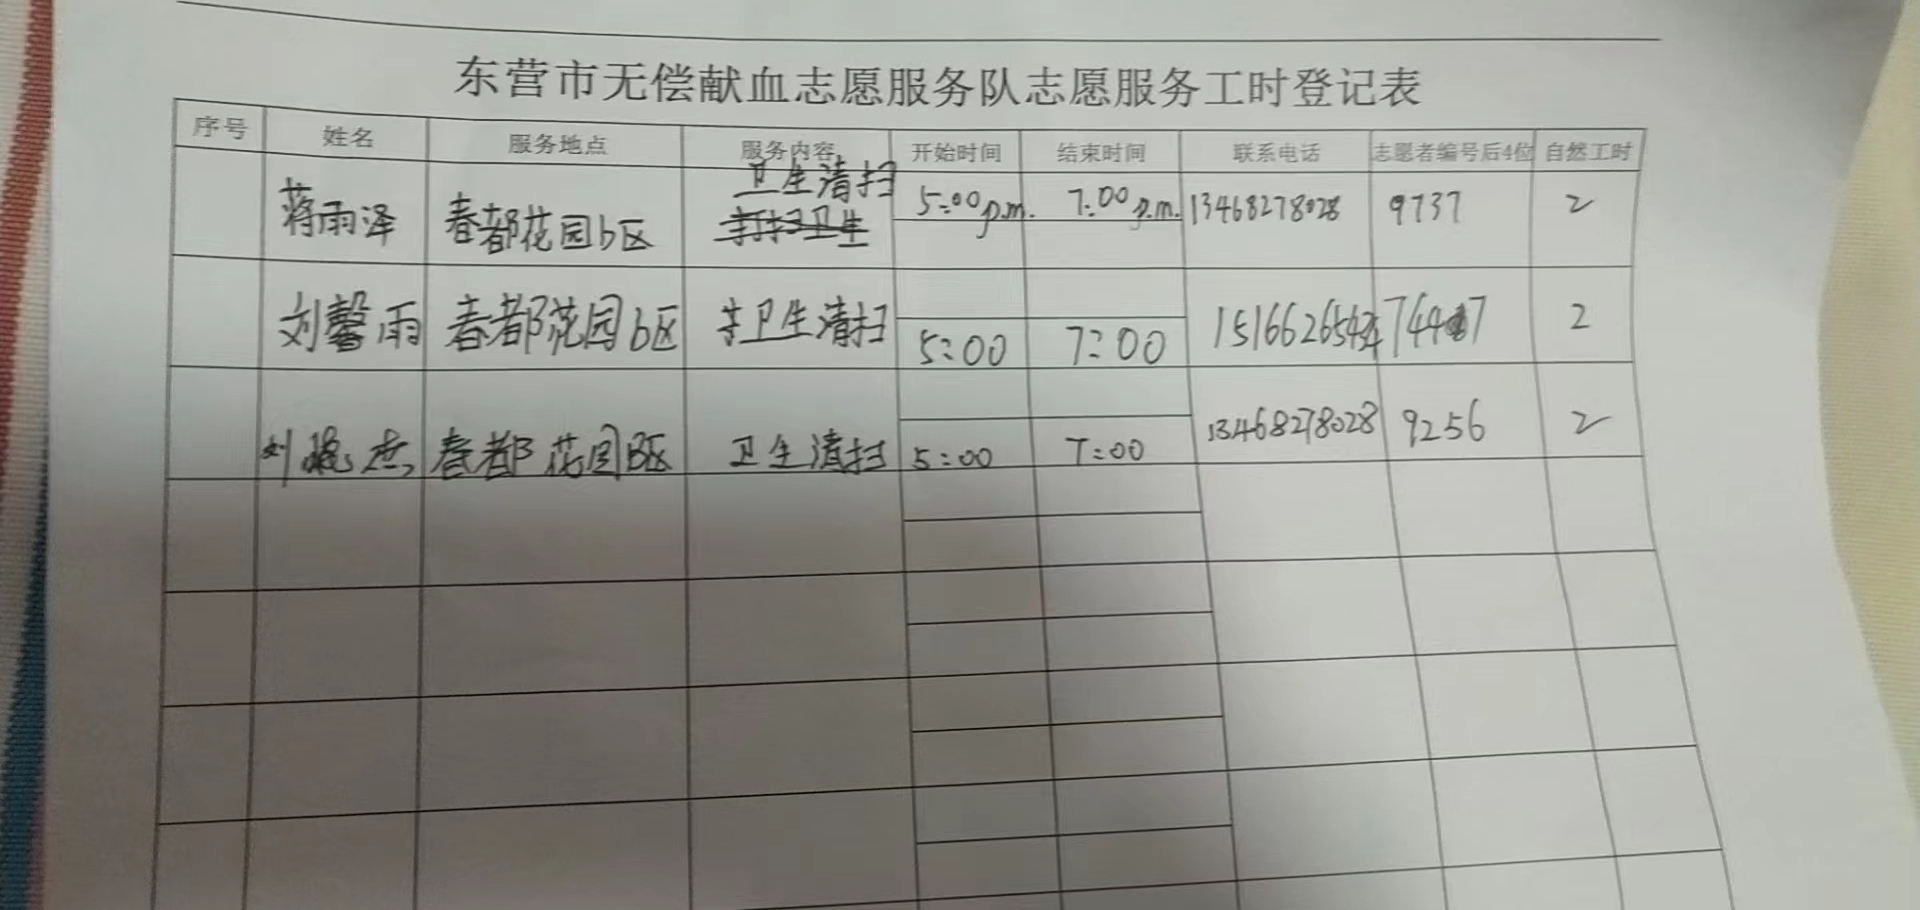 东营市无偿献血志愿服务队志愿服务工时登记表
序号 姓名 服务地点 服务内容 开始时间 结束时间 联系电话 志愿者编号后4位 自然工时
蒋雨泽 春都花园b区 卫生清扫 5:00p.m. 7:00p.m. 13468278028 9737 2
打扫卫生
刘馨雨 春都花园b区 卫生清扫 5:00 7:00 2
刘 春都花园B区 卫生清扫 5:00 7:00 13468278028 9256 2